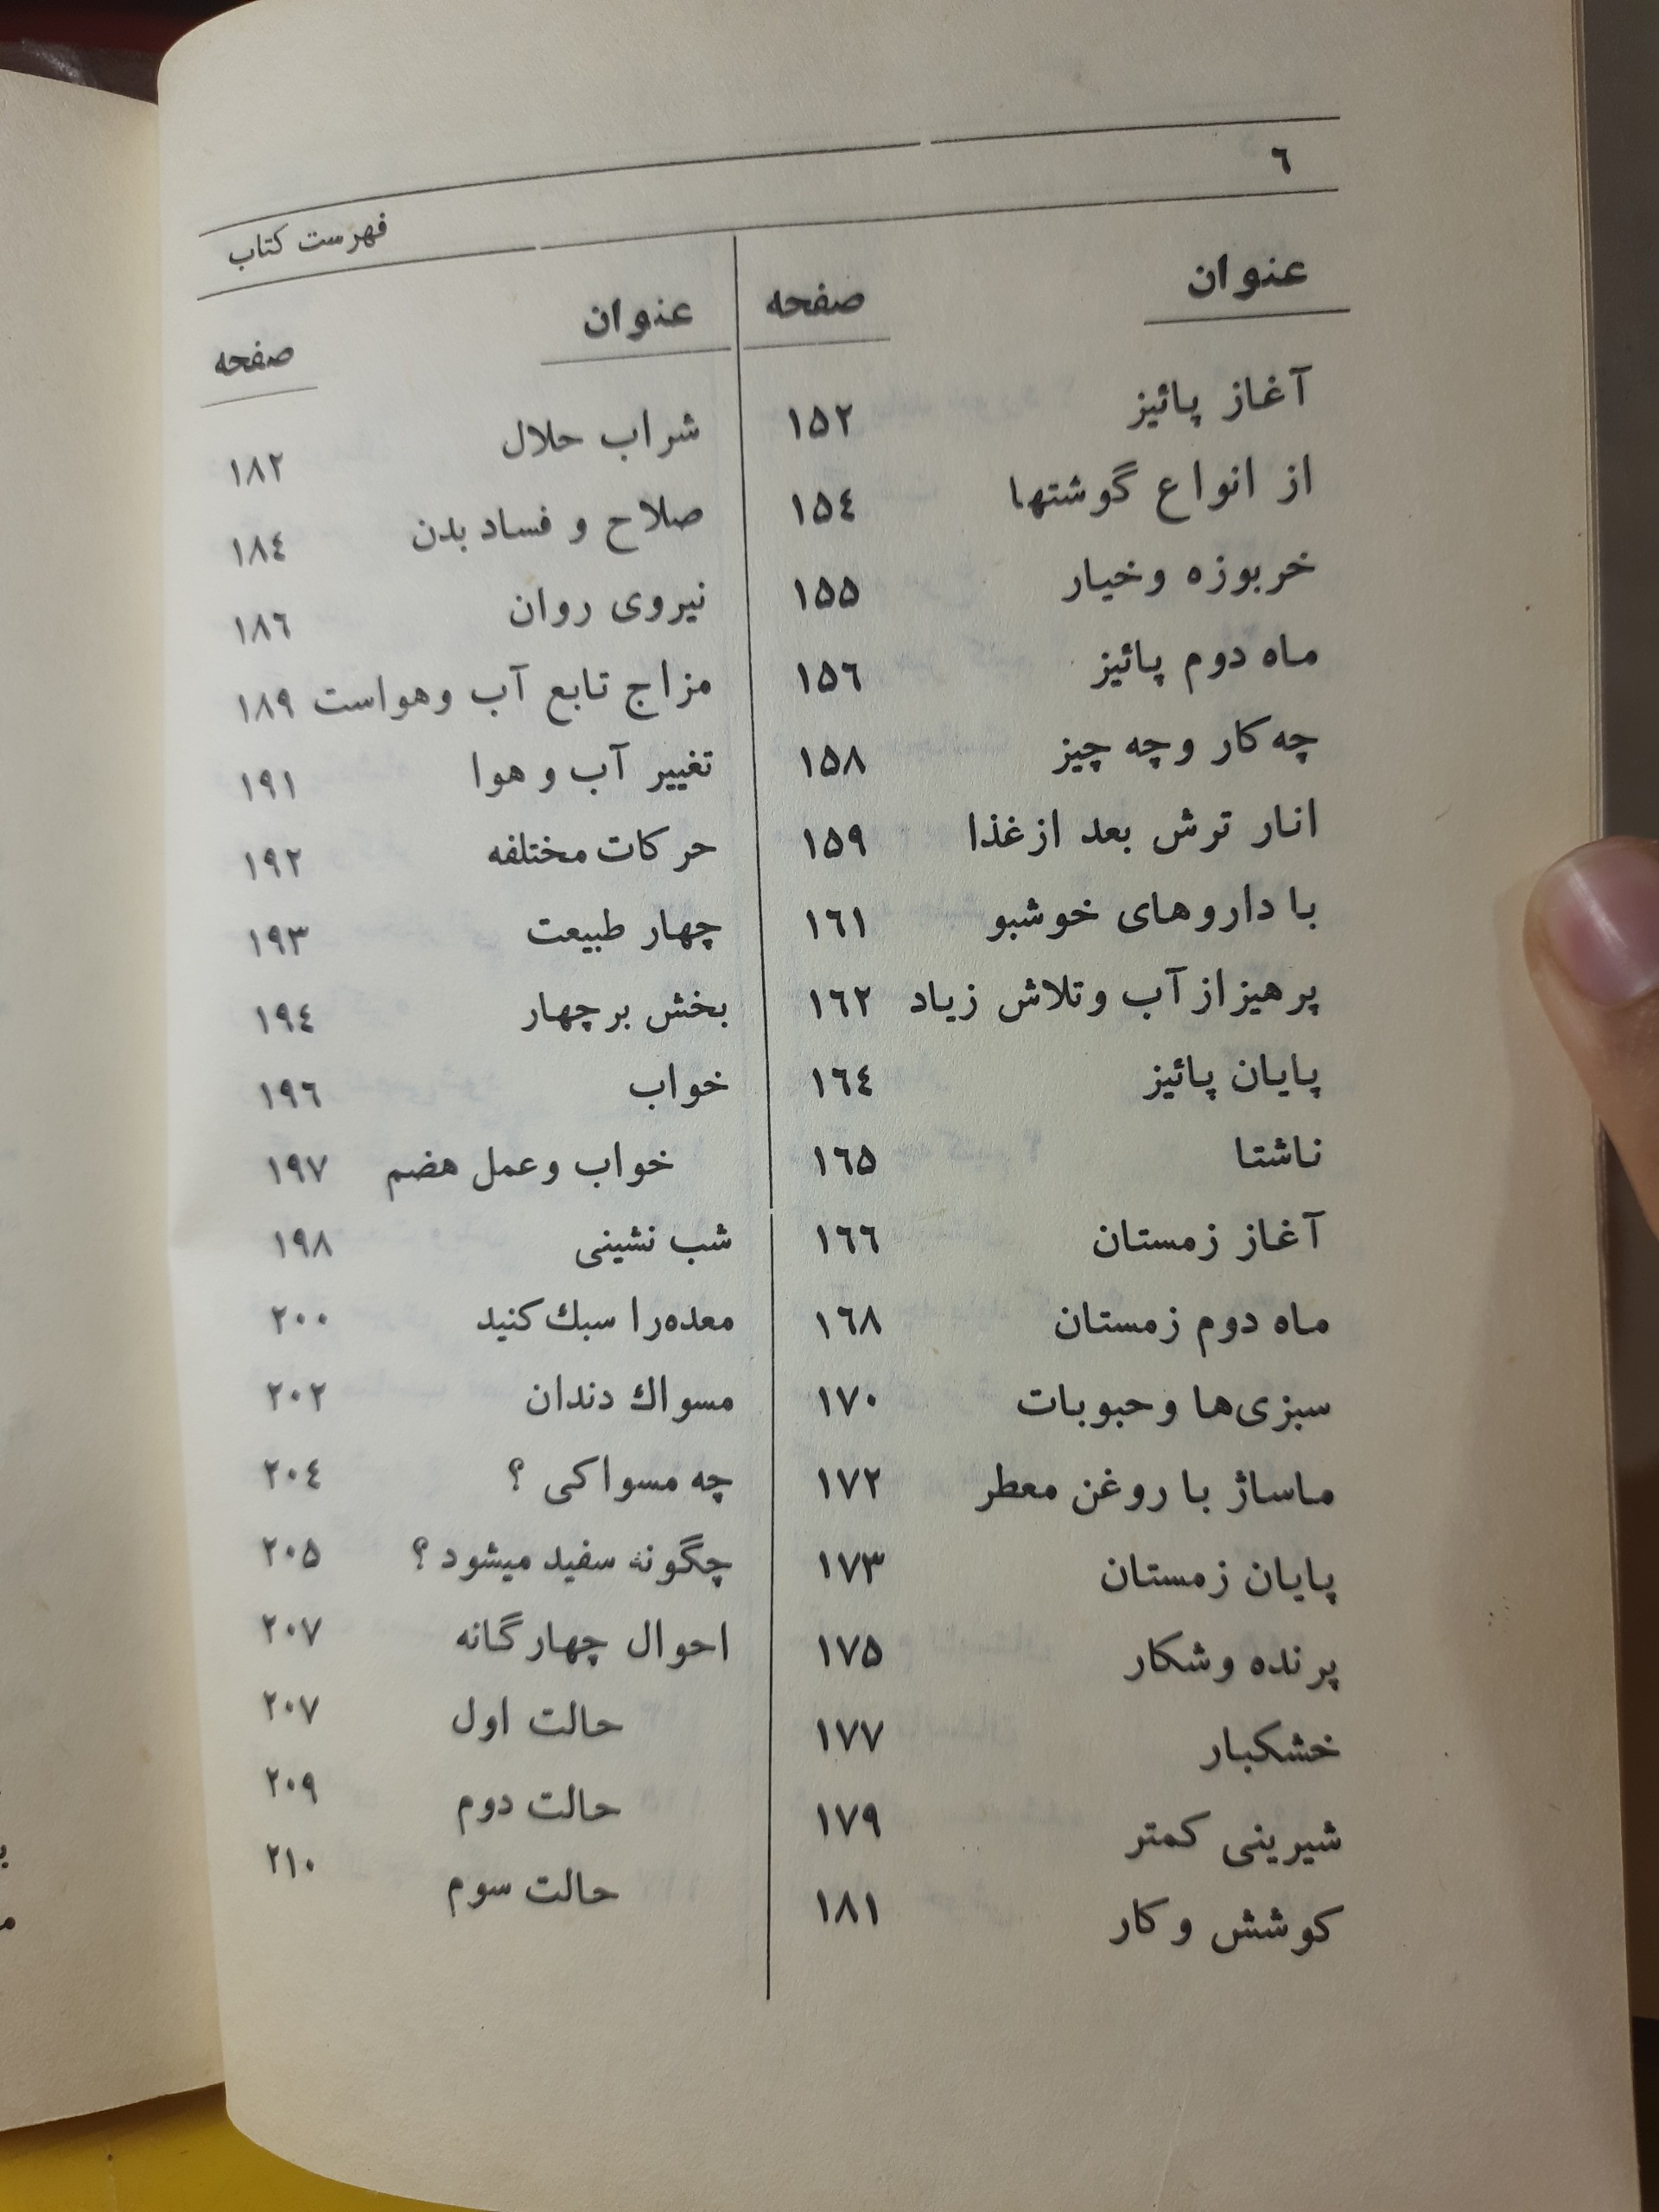 ٦
فهرست کتاب
عنوان
صفحه
آغاز پائیز ۱۵۲
از انواع گوشتها ۱۵٤
خربوزه وخیار ۱۵۵
ماه دوم پائیز ۱۵٦
چه کار وچه چیز ۱۵۸
انار ترش بعد ازغذا ۱۵۹
با داروهای خوشبو ۱٦۱
پرهیزاز آب وتلاش زیاد ۱٦۲
پایان پائیز ۱٦٤
ناشتا ۱٦۵
آغاز زمستان ۱٦٦
ماه دوم زمستان ۱٦۸
سبزی‌ها وحبوبات ۱۷۰
ماساژ با روغن معطر ۱۷۲
پایان زمستان ۱۷۳
پرنده وشکار ۱۷۵
خشکبار ۱۷۷
شیرینی کمتر ۱۷۹
کوشش وکار ۱۸۱
عنوان
صفحه
شراب حلال ۱۸۲
صلاح و فساد بدن ۱۸٤
نیروی روان ۱۸٦
مزاج تابع آب وهواست ۱۸۹
تغییر آب و هوا ۱۹۱
حرکات مختلفه ۱۹۲
چهار طبیعت ۱۹۳
بخش برچهار ۱۹٤
خواب ۱۹٦
خواب وعمل هضم ۱۹۷
شب نشینی ۱۹۸
معده‌را سبك کنید ۲۰۰
مسواك دندان ۲۰۲
چه مسواکی ؟ ۲۰٤
چگونه سفید میشود ؟ ۲۰۵
احوال چهارگانه ۲۰۷
حالت اول ۲۰۷
حالت دوم ۲۰۹
حالت سوم ۲۱۰